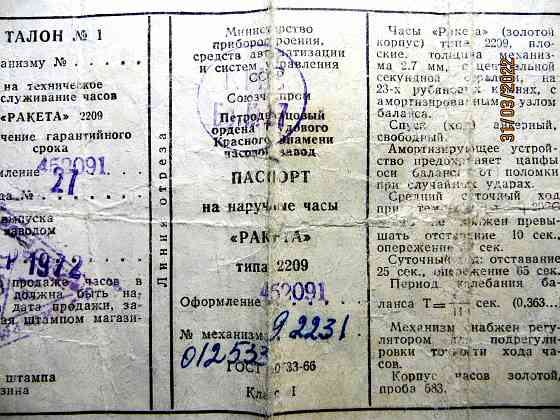 ТАЛОН № 1
анизму №
на техническое
служивание часов
«РАКЕТА» 2209
ечение гарантийного
срока
мление 452091
да № 27
выпуска
заводом
1972
продаже часов в
должна быть на-
дата продажи, за-
ая штампом магази-
штампа
зина
Линия отреза
Министерство
приборостроения,
средств автоматизации
и систем управления
СССР
Союзчаспром
Петродворцовый
ордена Трудового
Красного Знамени
часовой завод
ПАСПОРТ
на наручные часы
«РАКЕТА»
типа 2209
Оформление 452091
№ механизма 9.2231
012533
ГОСТ 10733-66
Класс I
Часы «Ракета» (золотой
корпус) типа 2209, плос-
кие, толщина механиз-
ма 2,7 мм, с центральной
секундной стрелкой, на
23-х рубиновых камнях, с
амортизированным узлом
баланса.
Спуск (ход) анкерный,
свободный.
Амортизирующее устрой-
ство предохраняет цапфы
оси баланса от поломки
при случайных ударах.
Средний суточный ход
при тем
не должен превы-
шать отставание 10 сек,
опережение сек.
Суточный ход: отставание
25 сек., опережение 65 сек
Период колебания ба-
ланса Т= сек. (0,363...
11
Механизм снабжен регу-
лятором для подрегули-
ровки точности хода ча-
сов.
Корпус часов золотой,
проба 583.
31/03/2022